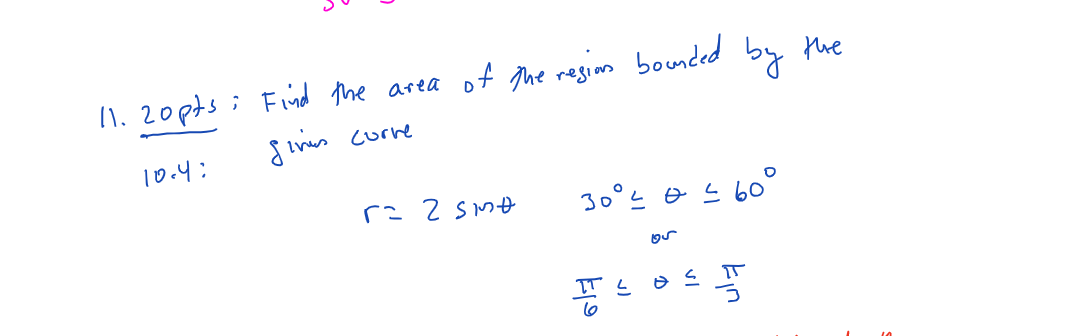 11. 20pts ; Find the area of the region bounded by the
10.4: given curve
r = 2 sinθ 30° ≤ θ ≤ 60°
or
π/6 ≤ θ ≤ π/3